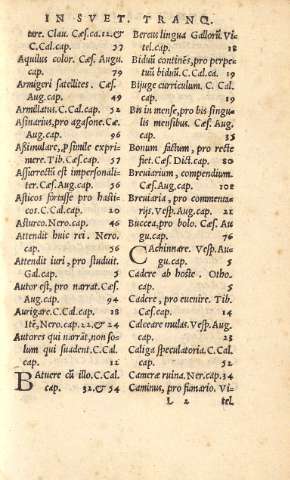 IN SVET. TRANQ.
tere. Clau. Cæs. ca. 12. &
C. Cal. cap. 37
Aquilus color. Cæs. Augu.
cap. 79
Armigeri satellites. Cæs.
Aug. cap. 49
Armillatus. C. Cal. cap. 52
Asinarius, pro agasone. Cæ.
Aug. cap. 96
Assimulare, pro simile exprimere.
Tib. Cæs. cap. 57
Assurrectū est impersonaliter.
Cæs. Aug. cap. 56
Asticos fortisse pro hasticos.
C. Cal. cap. 20
Asturco. Nero. cap. 46
Attendit huic rei. Nero.
cap. 56
Attendit iuri, pro studuit.
Gal. cap. 5
Autor est, pro narrat. Cæs.
Aug. cap. 94
Aurigare. C. Cal. cap. 18
Itē, Nero. cap. 22. & 24
Autores qui narrāt, non solum
qui suadent. C. Cal.
cap. 12
BAtuere cū illo. C. Cal.
cap. 32. & 54
Bercus lingua Gallorū. Vitel.
cap. 18
Biduū continēs, pro perpetuū
biduū. C. Cal. ca. 19
Bijuge curriculum. C. Cal.
cap. 19
Bis in mense, pro bis singulis
mensibus. Cæs. Aug.
cap. 35
Bonum factum, pro recte
fiet. Cæs. Dict. cap. 80
Breviarium, compendium.
Cæs. Aug. cap. 101
Breviaria, pro commentarijs.
Vesp. Aug. cap. 21
Buccea, pro bolo. Cæs. Aug.
cap. 76
CAchinnare. Vesp. Augu.
cap. 5
Cadere ab hoste. Otho.
cap. 5
Cadere, pro evenire. Tib.
Cæs. cap. 14
Calceare mulas. Vesp. Aug.
cap. 23
Caliga speculatoria. C. Cal.
cap. 52
Cameræ ruina. Ner. cap. 34
Caminus, pro fumario. Vi-
L 2 tel.